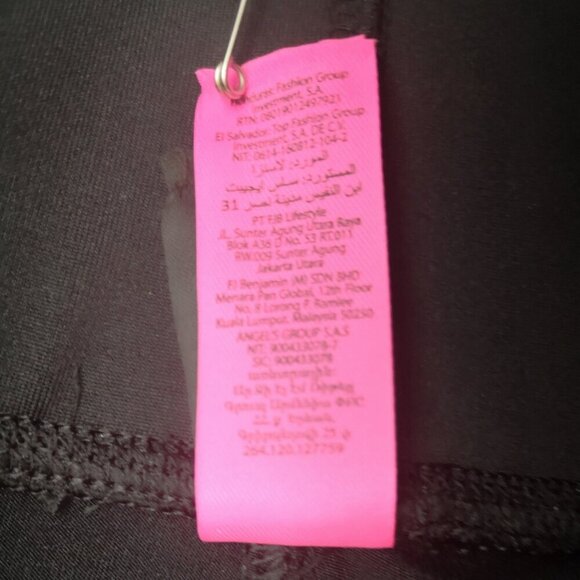 Honduras: Fashion Group
Investment, S.A.
RTN: 08019012497921
El Salvador: Top Fashion Group
Investment, S.A. DE C.V.
NIT: 0614-160812-104-2
المورد: لاسنزا
المستورد: ساس ايجيبت
ابن النفيس مدينة لصر 31
PT FJB Lifestyle
JL. Sunter Agung Utara Raya
Blok A36 D No. 53 RT.011
RW.009 Sunter Agung
Jakarta Utara
FJ Benjamin (M) SDN BHD
Menara Pan Global, 12th Floor
No. 8 Lorong P. Ramlee
Kuala Lumpur, Malaysia 50250
ANGEL'S GROUP S.A.S
NIT: 900433078-7
SIC: 900433078
264.120.127759